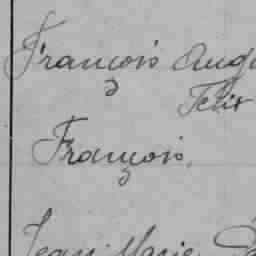 François
Félix
François,
Jean Marie